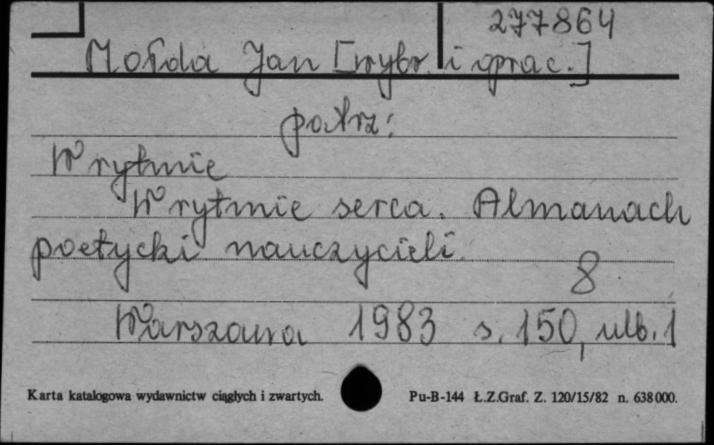 277864
Mołda Jan [wybr. i oprac.]
patrz:
W rytmie
W rytmie serca. Almanach
poetycki nauczycieli.
8
Warszawa 1983 s. 150, ulb. 1
Karta katalogowa wydawnictw ciągłych i zwartych. Pu-B-144 Ł.Z.Graf. Z. 120/15/82 n. 638000.